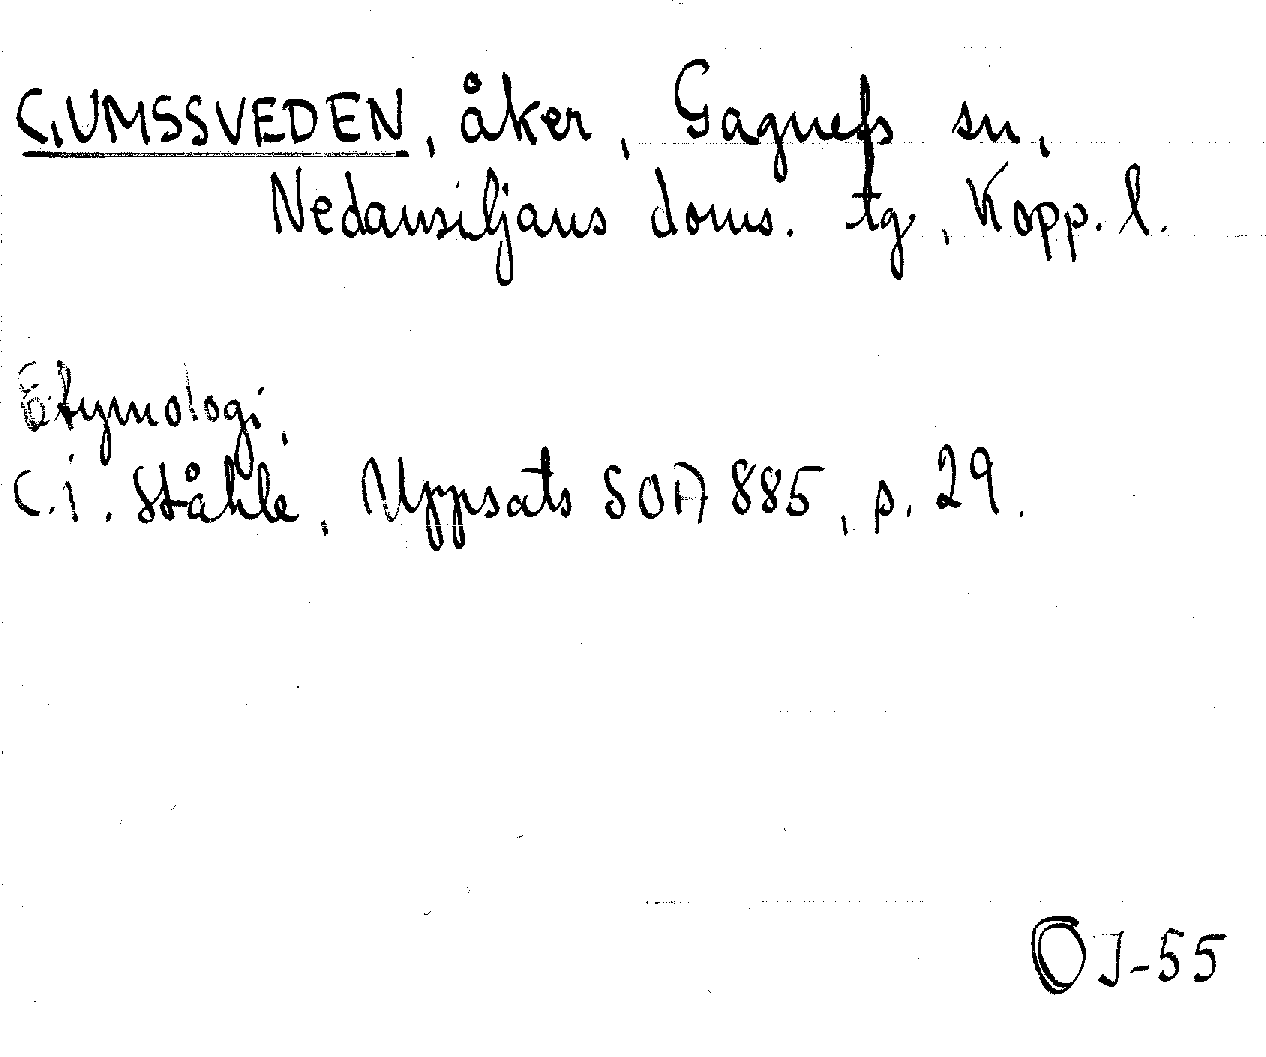 GUMSSVEDEN, åker, Gagnefs sn,
Nedansiljans doms. tg, Kopp. l.
Etymologi,
C.I. Ståhle, Uppsats SOA 885, p. 29.
OJ-55